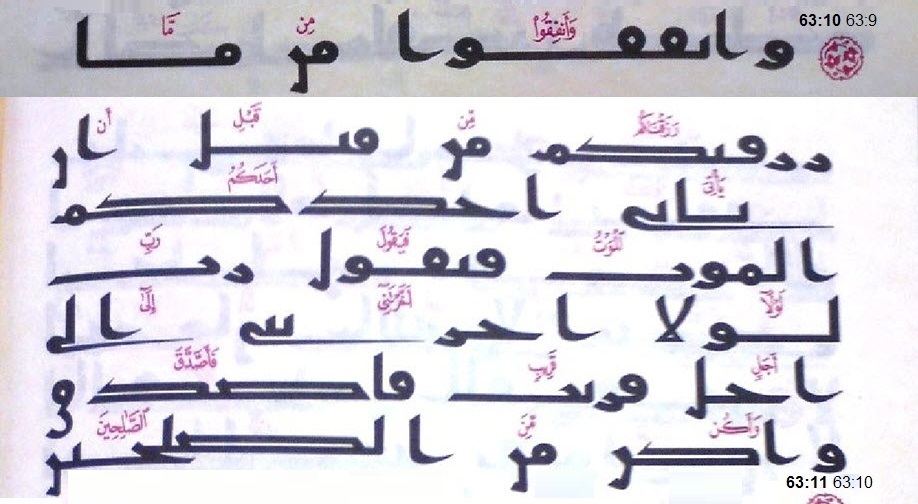 63:10 63:9
وَأَنفِقُوا۟ مِن مَّا
وانفقوا من ما
رَزَقْنَـٰكُم مِّن قَبْلِ أَن
رزقنكم من قبل ان
يَأْتِىَ أَحَدَكُمُ
ياتى احدكم
ٱلْمَوْتُ فَيَقُولَ رَبِّ
الموت فيقول رب
لَوْلَآ أَخَّرْتَنِىٓ إِلَىٰٓ
لولا اخرتنى الى
أَجَلٍ قَرِيبٍ فَأَصَّدَّقَ
اجل قريب فاصدق
وَأَكُن مِّنَ ٱلصَّـٰلِحِينَ
واكن من الصلحين
63:11 63:10